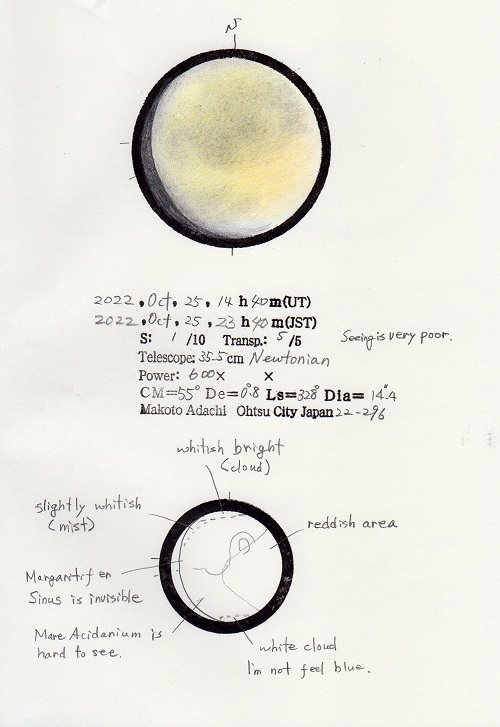 N
2022, Oct, 25, 14 h 40 m(UT)
2022, Oct, 25, 23 h 40 m(JST)
S: 1 /10 Transp.: 5 /5 Seeing is very poor.
Telescope: 35.5 cm Newtonian
Power: 600× ×
CM=55° De=0.°8 Ls=328° Dia= 14."4
Makoto Adachi Ohtsu City Japan 22-296
whitish bright
(cloud)
slightly whitish
(mist)
reddish area
Margaritifer
Sinus is invisible
Mare Acidanium is
hard to see.
white cloud
I'm not feel blue.